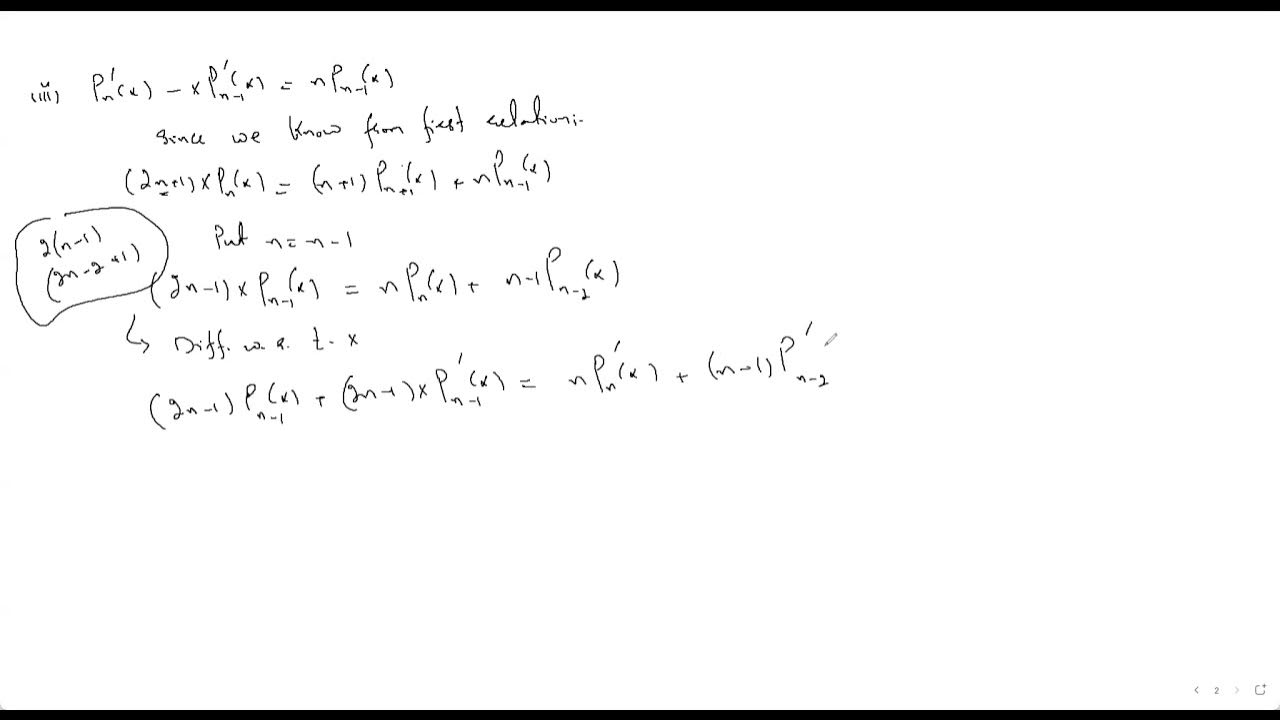 (iii) P'n(x) - xP'n-1(x) = nPn-1(x)
Since we know from first relation:-
(2n+1)xPn(x) = (n+1)Pn+1(x) + nPn-1(x)
Put n = n-1
2(n-1)
(2n-2+1)
(2n-1)xPn-1(x) = nPn(x) + n-1Pn-2(x)
↳ Diff. w.r.t. x
(2n-1)Pn-1(x) + (2n-1)xP'n-1(x) = nP'n(x) + (n-1)P'n-2
2